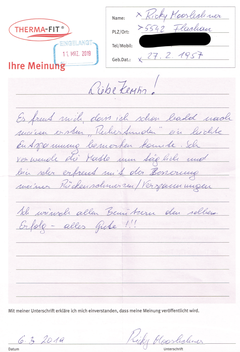 THERMA-FIT®
EINGELANGT
11. MRZ. 2019
Ihre Meinung
Name: Ricky Moorlechner
PLZ/Ort:
Tel/Mobil:
Geb.Dat.: 17. 2. 1957
Es freut mich, dass ich schon bald nach
meinen ersten eine leichte
Entspannung bemerken konnte. Ich
verwende die Matte nun täglich und
bin sehr erfreut mit der Besserung
meiner Rückenschmerzen/Verspannungen
Ich wünsch allen Benützern den selben
Erfolg - alles Gute !!!
Mit meiner Unterschrift erkläre ich mich einverstanden, dass meine Meinung veröffentlicht wird.
6. 3. 2019
Ricky Moorlechner
Datum
Unterschrift